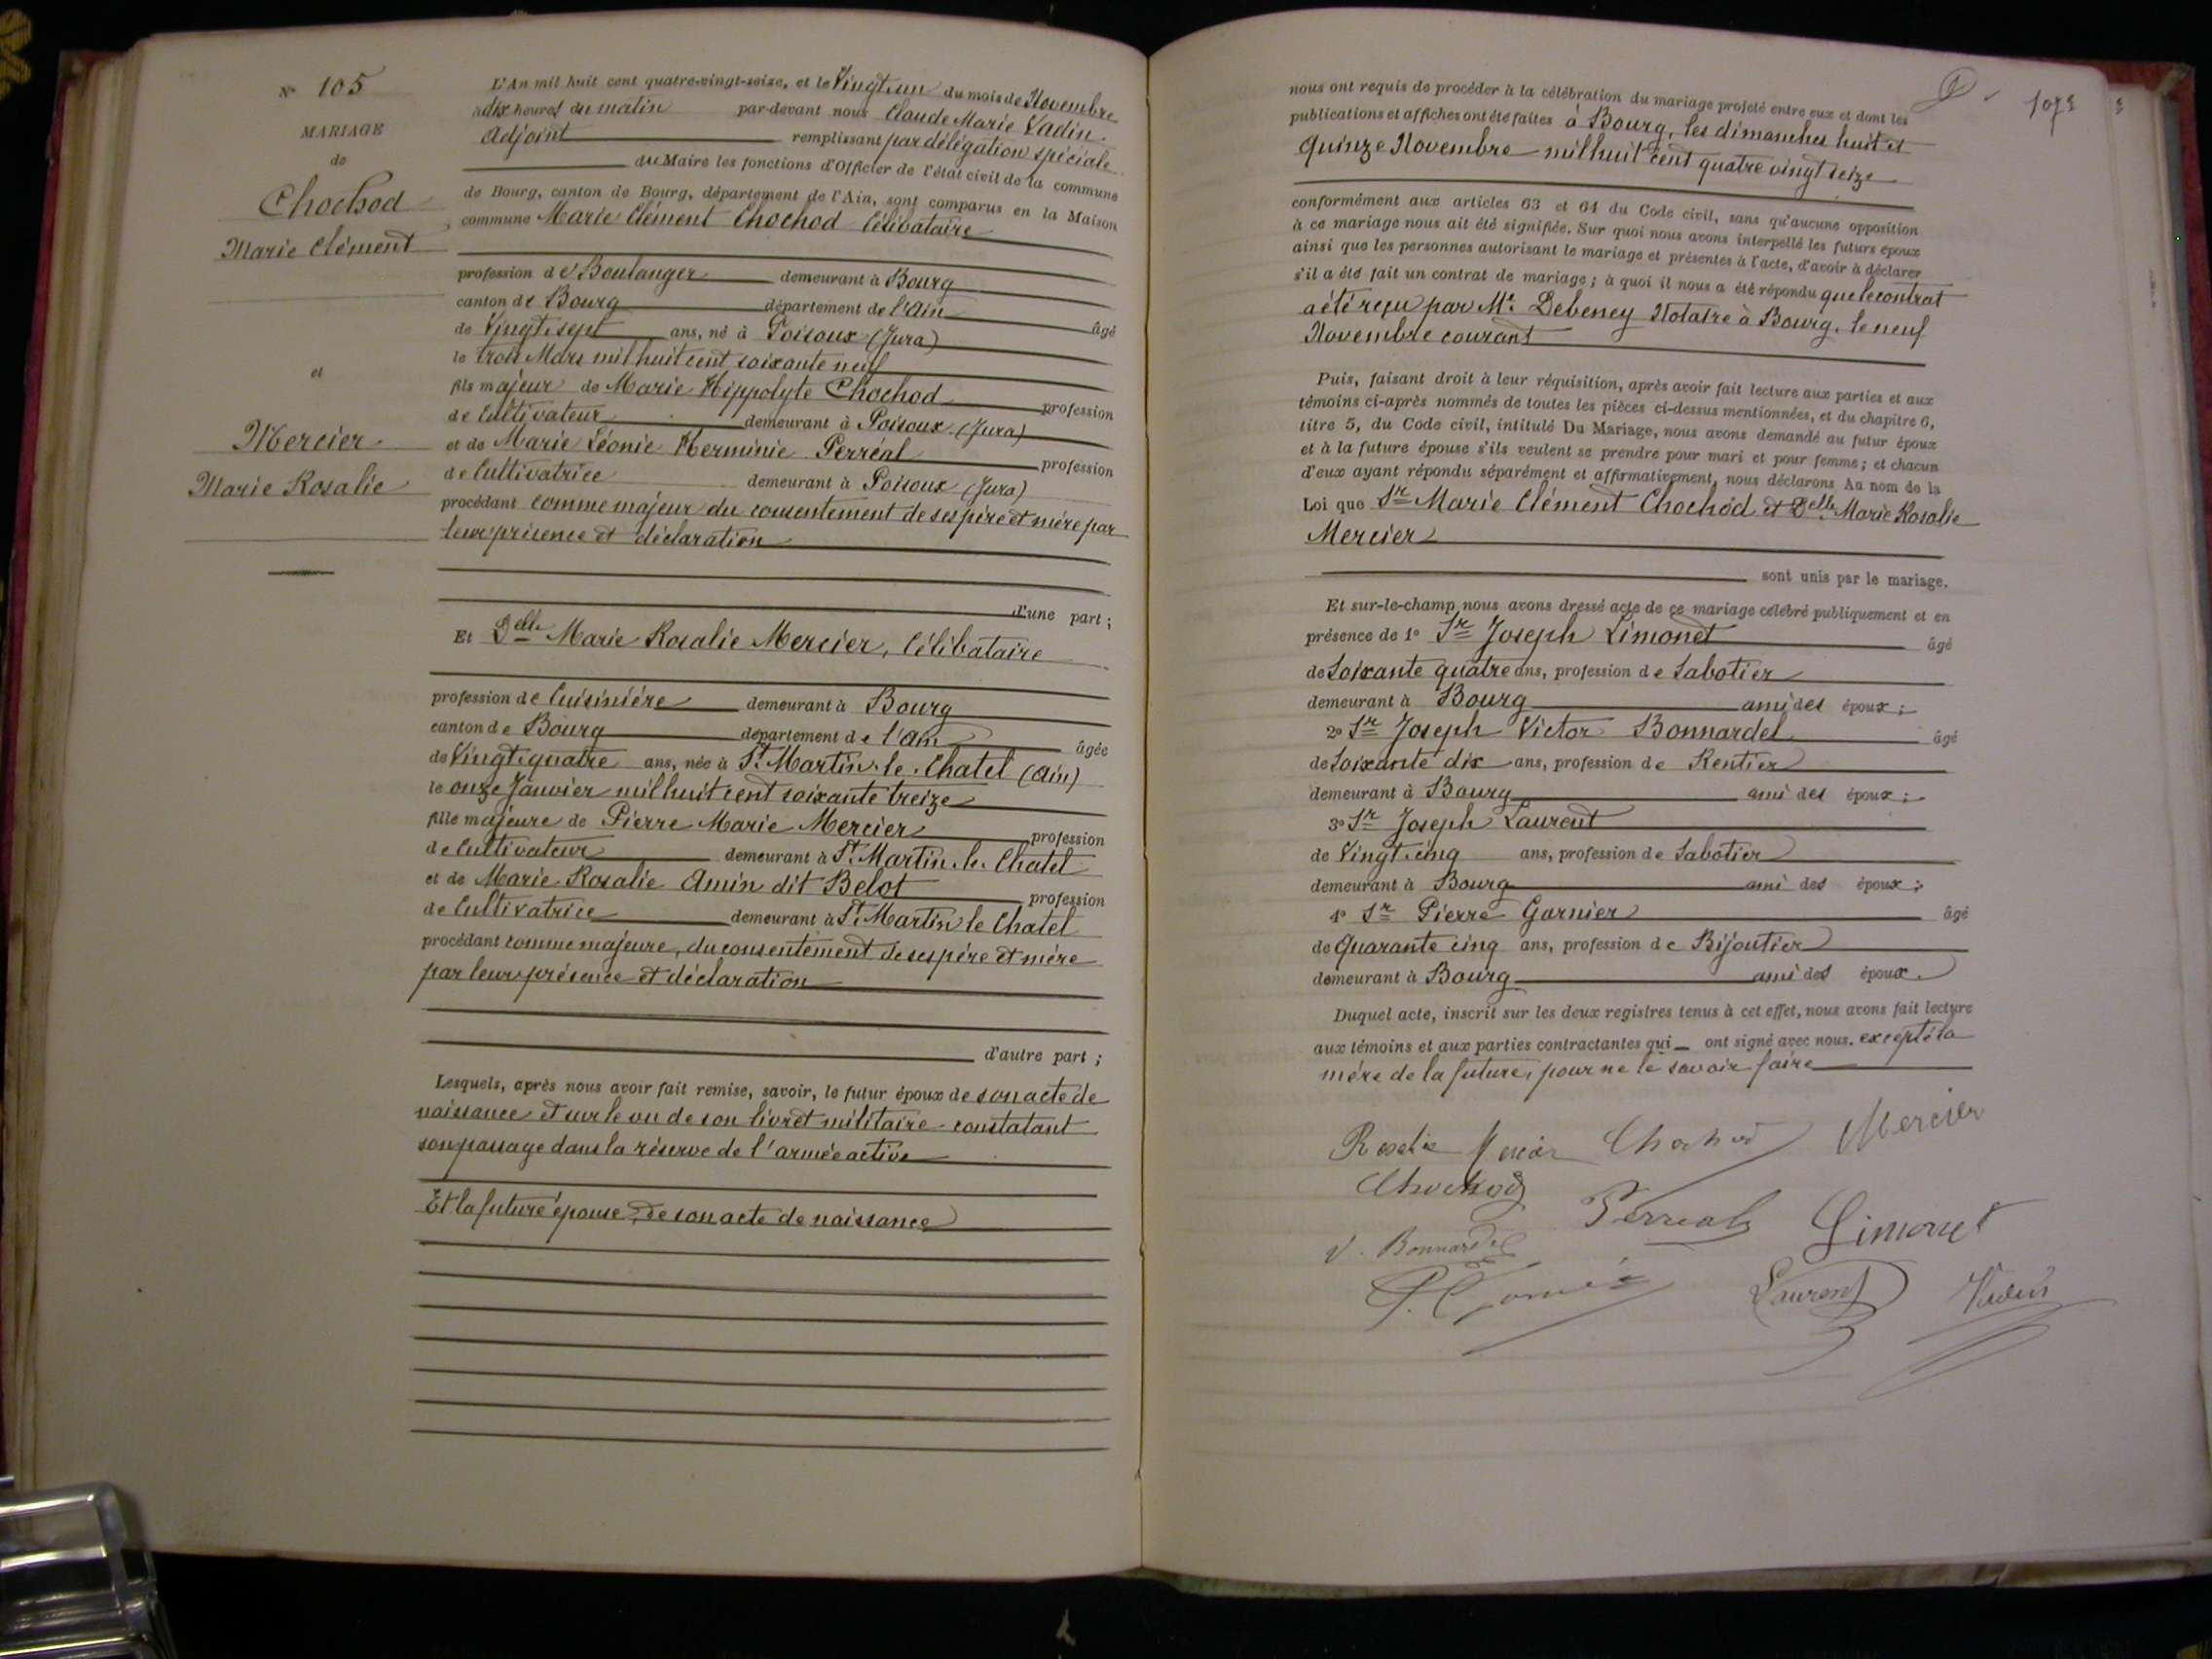 N° 105
MARIAGE
de
Chochod
Marie Clément
et
Mercier
Marie Rosalie
L'An mil huit cent quatre-vingt-seize, et le Vingt-un du mois de Novembre
à dix heures du matin par-devant nous Claude Marie Vadin
Adjoint remplissant par délégation spéciale
du Maire les fonctions d'Officier de l'état civil de la commune
de Bourg, canton de Bourg, département de l'Ain, sont comparus en la Maison
commune Marie Clément Chochod Célibataire
profession de Boulanger demeurant à Bourg
canton de Bourg département de l'Ain âgé
de Vingt-sept ans, né à Poisoux (Jura)
le trois Mars mil huit cent soixante neuf
fils majeur de Marie Hippolyte Chochod profession
de Cultivateur demeurant à Poisoux (Jura)
et de Marie Léonie Herminie Perréal profession
de Cultivatrice demeurant à Poisoux (Jura)
procédant comme majeur du consentement de ses père et mère par
leur présence et déclaration
d'une part ;
Et Delle Marie Rosalie Mercier, Célibataire
profession de Cuisinière demeurant à Bourg
canton de Bourg département de l'Ain âgée
de Vingt-quatre ans, née à St. Martin-le-Chatel (Ain)
le onze Janvier mil huit cent soixante treize
fille majeure de Pierre Marie Mercier profession
de Cultivateur demeurant à St. Martin-le-Chatel
et de Marie Rosalie Amin dit Belot profession
de Cultivatrice demeurant à St. Martin le Chatel
procédant comme majeure, du consentement de ses père et mère
par leur présence et déclaration
d'autre part ;
Lesquels, après nous avoir fait remise, savoir, le futur époux de son acte de
naissance et sur le vu de son livret militaire constatant
son passage dans la réserve de l'armée active
Et la future épouse, de son acte de naissance
nous ont requis de procéder à la célébration du mariage projeté entre eux et dont les
publications et affiches ont été faites à Bourg, les dimanches huit et
quinze Novembre mil huit cent quatre vingt seize
conformément aux articles 63 et 64 du Code civil, sans qu'aucune opposition
à ce mariage nous ait été signifiée. Sur quoi nous avons interpellé les futurs époux
ainsi que les personnes autorisant le mariage et présentes à l'acte, d'avoir à déclarer
s'il a été fait un contrat de mariage ; à quoi il nous a été répondu que le contrat
a été reçu par Me. Debeney Notaire à Bourg, le neuf
Novembre courant
Puis, faisant droit à leur réquisition, après avoir fait lecture aux parties et aux
témoins ci-après nommés de toutes les pièces ci-dessus mentionnées, et du chapitre 6,
titre 5, du Code civil, intitulé Du Mariage, nous avons demandé au futur époux
et à la future épouse s'ils veulent se prendre pour mari et pour femme ; et chacun
d'eux ayant répondu séparément et affirmativement, nous déclarons Au nom de la
Loi que Sr Marie Clément Chochod et Delle Marie Rosalie
Mercier
sont unis par le mariage.
Et sur-le-champ nous avons dressé acte de ce mariage célébré publiquement et en
présence de 1° Sr Joseph Limonet âgé
de Soixante quatre ans, profession de Sabotier
demeurant à Bourg ami des époux ;
2° Sr Joseph Victor Bonnardel âgé
de Soixante dix ans, profession de Rentier
demeurant à Bourg ami des époux ;
3° Sr Joseph Laurent
de Vingt-cinq ans, profession de Sabotier
demeurant à Bourg ami des époux ;
4° Sr Pierre Garnier âgé
de Quarante cinq ans, profession de Bijoutier
demeurant à Bourg ami des époux.
Duquel acte, inscrit sur les deux registres tenus à cet effet, nous avons fait lecture
aux témoins et aux parties contractantes qui ont signé avec nous. excepté la
mère de la future, pour ne le savoir faire
Rosalie Mercier Chochod Mercier
Chochod Perréal Limonet
V. Bonnardel
P. Garnier Laurent Vadin